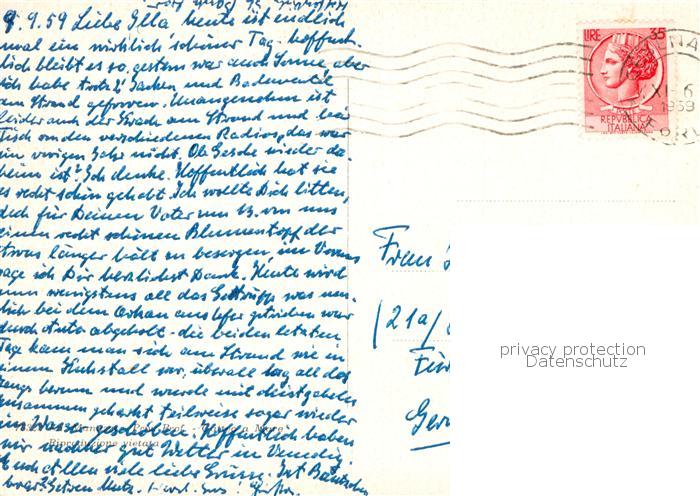 9.9.59 Liebe Illa heute ist endlich
mal ein wirklich schöner Tag. hoffent-
lich bleibt es so, gestern war auch Sonne, aber
ich habe trotz 2 Jacken und Bademantel
am Strand gefroren. Unangenehm ist
leider auch der Krach am Strand und bei
Tisch von den verschiedenen Radios, das war
im vorigen Jahr nicht. Ob Gesche wieder da-
heim ist? Ich denke. Hoffentlich hat sie
es recht schön gehabt. Ich wollte Dich bitten,
doch für Deinen Vater um 13. von uns
einen recht schönen Blumentopf der
etwas länger hält zu besorgen, im Voraus
sage ich Dir herzlichst Dank. Heute wird
nun wenigstens all das was neu-
lich bei dem Orkan ans Ufer getrieben war
durch Auto abgeholt - die beiden letzten
Tage kam man sich am Strand wie in
einem vor, überall lag all das
Zeugs herum und wurde mit Mistgabeln
zusammen geharkt teilweise sogar wieder
ins Wasser geschoben. Hoffentlich haben
wir nachher gut Wetter in Venedig
Euch Allen viele liebe Grüsse.
Riproduzione vietata
LIRE 35
REPVBBLICA
ITALIANA
XI-6
1959
Frau
(21a)
privacy protection
Datenschutz